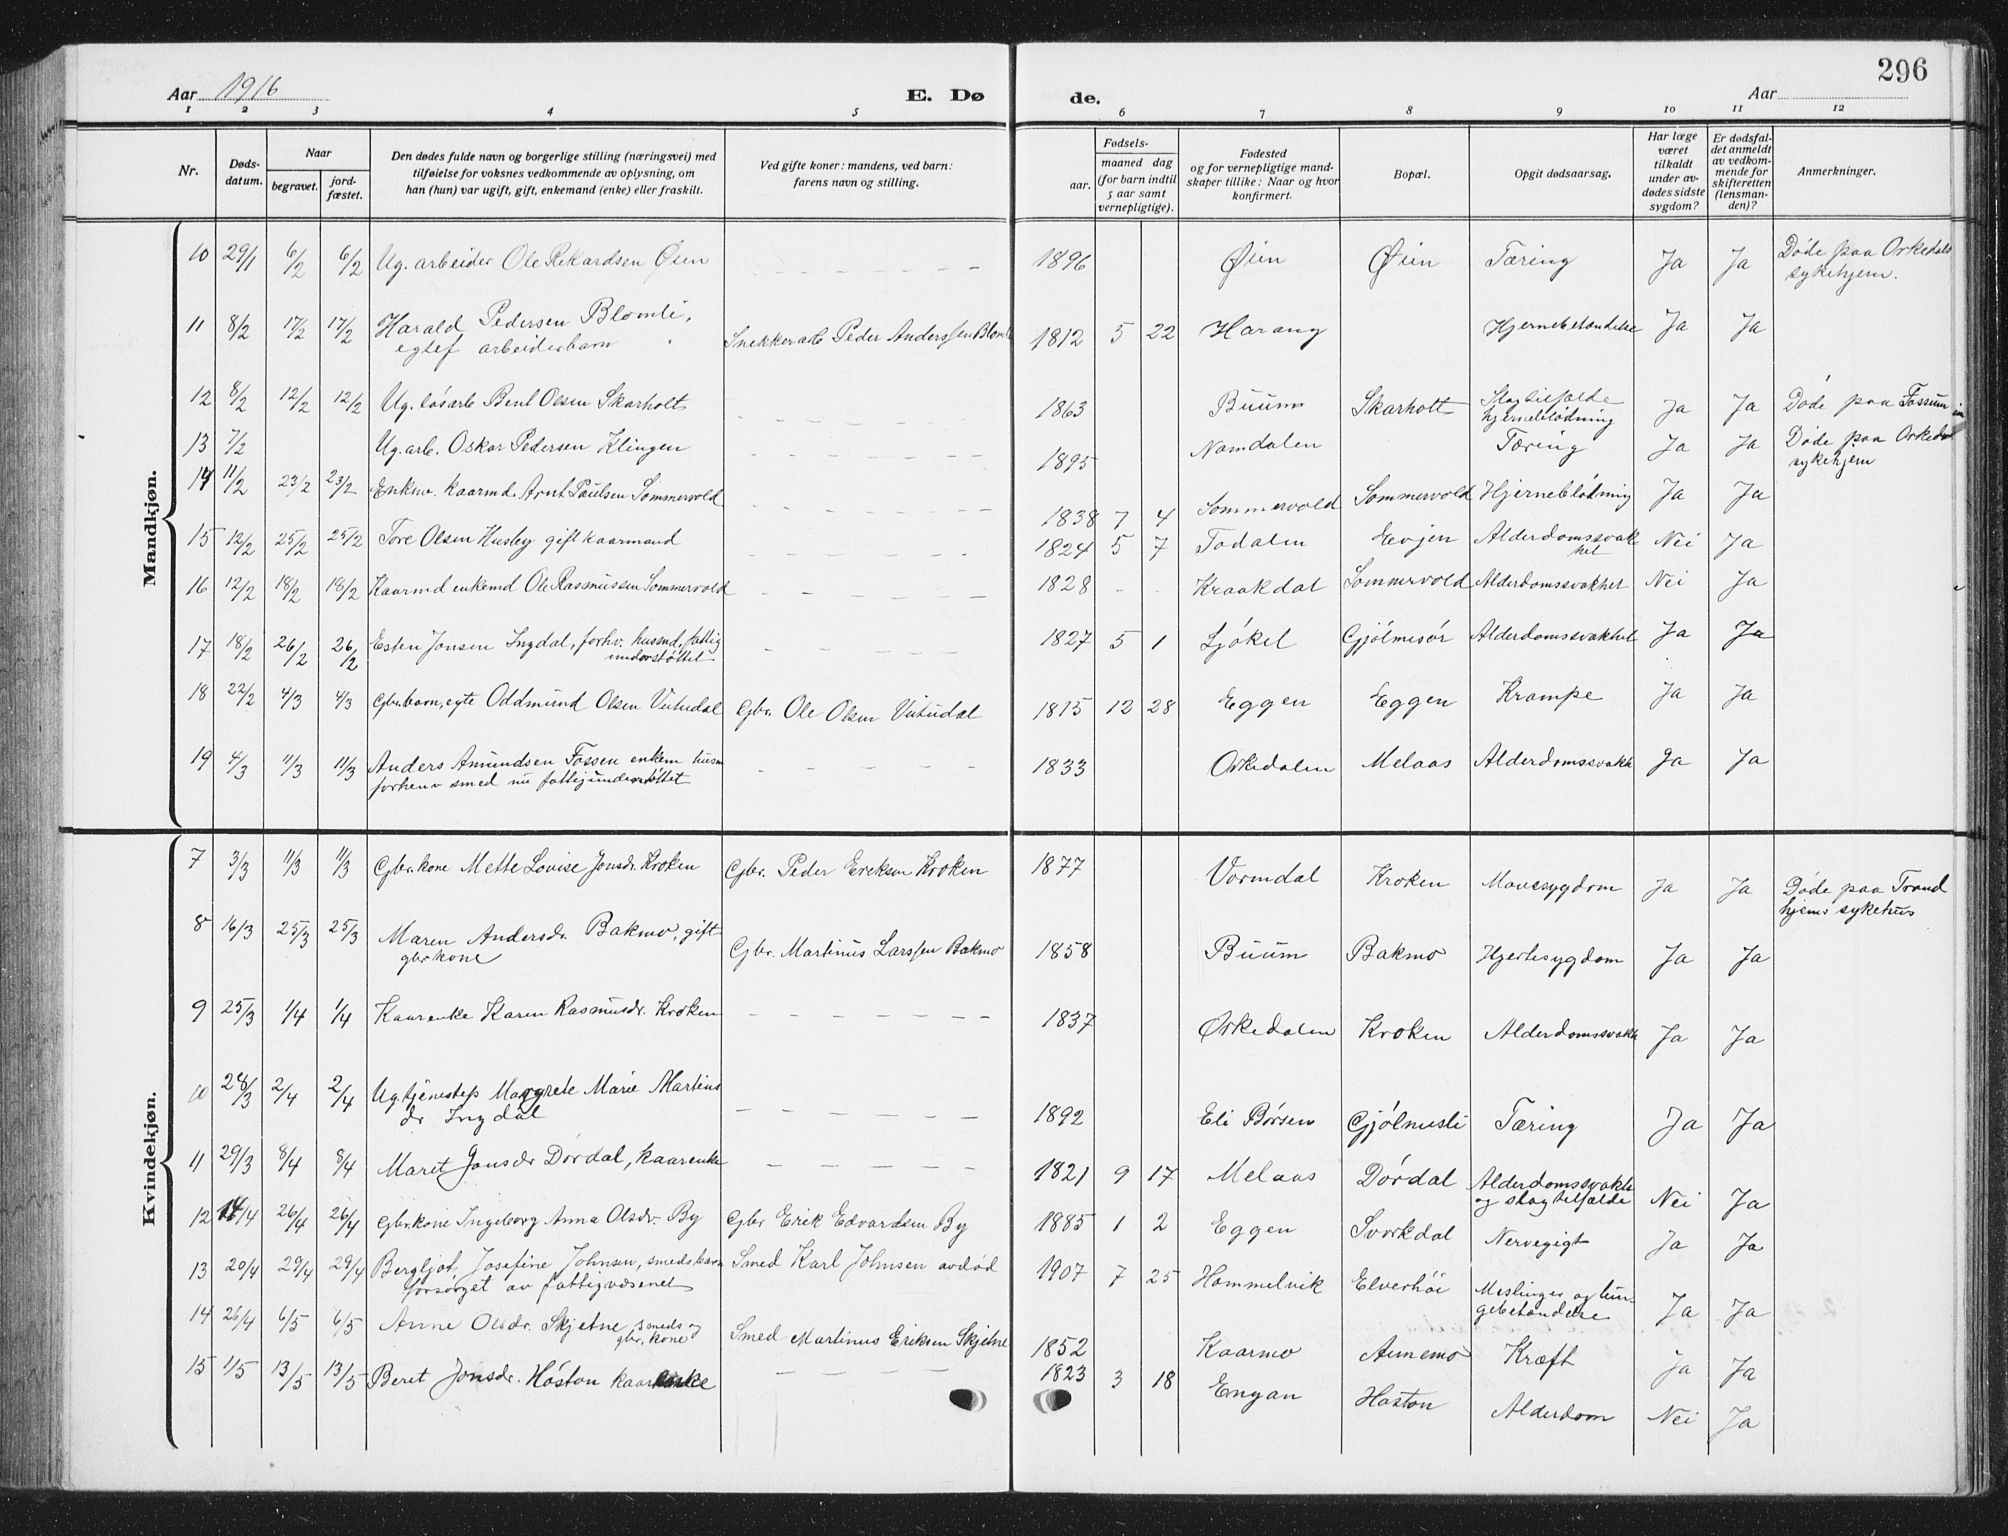 296
Aar 1916 E. Døde. Aar
1 2 3 4 5 6 7 8 9 10 11 12
Nr.
Døds-
datum.
Naar
begravet.
jord-
fæstet.
Den dødes fulde navn og borgerlige stilling (næringsvei) med
tilføielse for voksnes vedkommende av oplysning, om
han (hun) var ugift, gift, enkemand (enke) eller fraskilt.
Ved gifte koner: mandens, ved barn:
farens navn og stilling.
Fødsels-
aar.
maaned dag
(for barn indtil
5 aar samt
vernepligtige).
Fødested
og for vernepligtige mand-
skaper tillike: Naar og hvor
konfirmert.
Bopæl.
Opgit dødsaarsag.
Har læge
været
tilkaldt
under av-
dødes sidste
sygdom?
Er dødsfal-
det anmeldt
av vedkom-
mende for
skifteretten
(lensman-
den)?
Anmerkninger.
Mandkjøn.
10 29/1 6/2 6/2 Ug. arbeider Ole Rikardsen Øien 1896 Øien Øien Tæring Ja Ja Døde paa Orkedals
sykehjem.
11 8/2 17/2 17/2 Harald Pedersen Blomli, Snekkerarb Peder Anderssen Blomli 1812 5 22 Harang Hjernebetændelse Ja Ja
egtef arbeiderbarn
12 8/2 12/2 12/2 Ug. løsarb Bent Olsen Skarholt 1863 Buum Skarholt Slagtilfælde Ja Ja Døde paa Fossum
hjerneblødning
13 7/2 Ug. arb. Oskar Pedersen Klingen 1895 Namdalen Tæring Ja Ja Døde paa Orkedal
sykehjem
14 11/2 23/2 23/2 Enkm. kaarmd. Arnt Paulsen Sommervold 1838 7 4 Sommervold Sommervold Hjerneblødning Ja Ja
15 12/2 25/2 25/2 Tore Olsen Husby gift kaarmand 1824 5 7 Todalen Evjen Alderdomssvak Nei Ja
het
16 12/2 18/2 18/2 Kaarmd enkemd Ole Rasmussen Sommervold 1828 Kraakdal Sommervold Alderdomssvakhet Nei Ja
17 18/2 26/2 26/2 Esten Jonsen Ingdal, forhv. husmd, fattig 1827 5 1 Sjøkel Gjølmesør Alderdomssvakhet Ja Ja
understøttet
18 22/2 4/3 4/3 Gbr.barn, egte Oddmund Olsen Vutudal Gbr. Ole Olsen Vutudal 1815 12 28 Eggen Eggen Krampe Ja Ja
19 4/3 11/3 11/3 Anders Amundsen Fossen enkem husm 1833 Orkedalen Melaas Alderdomssvakh Ja Ja
forhenv smed nu fattigunderstøttet
Kvindekjøn.
7 3/3 11/3 11/3 Gbr.kone Mette Lovise Jonsdr. Kroken Gbr. Peder Eriksen Kroken 1877 Vormdal Kroken Mavesygdom Ja Ja Døde paa Trond
hjems sykehus
8 16/3 25/3 25/3 Maren Andersdr. Bakmo, gift Gbr. Martinus Larssen Bakmo 1858 Buum Bakmo Hjertesygdom Ja Ja
gbrkone
9 25/3 1/4 1/4 Kaarenke Karen Rasmusdr. Kroken 1837 Orkedalen Kroken Alderdomssvakh Ja Ja
10 28/3 2/4 2/4 Ug. tjenestep Margrete Marie Martins 1892 Eli Børsen Gjølmesli Tæring Ja Ja
dr Ingdal
11 29/3 8/4 8/4 Maret Jonsdr Dørdal, kaarenke 1821 9 17 Melaas Dørdal Alderdomssvakh Nei Ja
og slagtilfælde
12 14/4 26/4 26/4 Gbr.kone Ingeborg Anna Olsdr. By Gbr Erik Edvardsen By 1885 1 2 Eggen Svorkdal Nervegigt Ja Ja
13 20/4 29/4 29/4 Bergljot Josefine Johnsen, smedsbarn Smed Karl Johnsen avdød 1907 7 25 Hommelvik Elverhøi Meslinger og lun- Ja Ja
forsørget av fattigvæsenet gebetændelse
14 26/4 6/5 6/5 Anne Olsdr. Skjetne, smeds og Smed Martinus Eriksen Skjetne 1852 Kaarmo Aunemo Kræft Ja Ja
gbr. kone
15 1/5 13/5 13/5 Beret Jonsdr. Høston kaarenke 1823 3 18 Engan Høston Alderdom Nei Ja